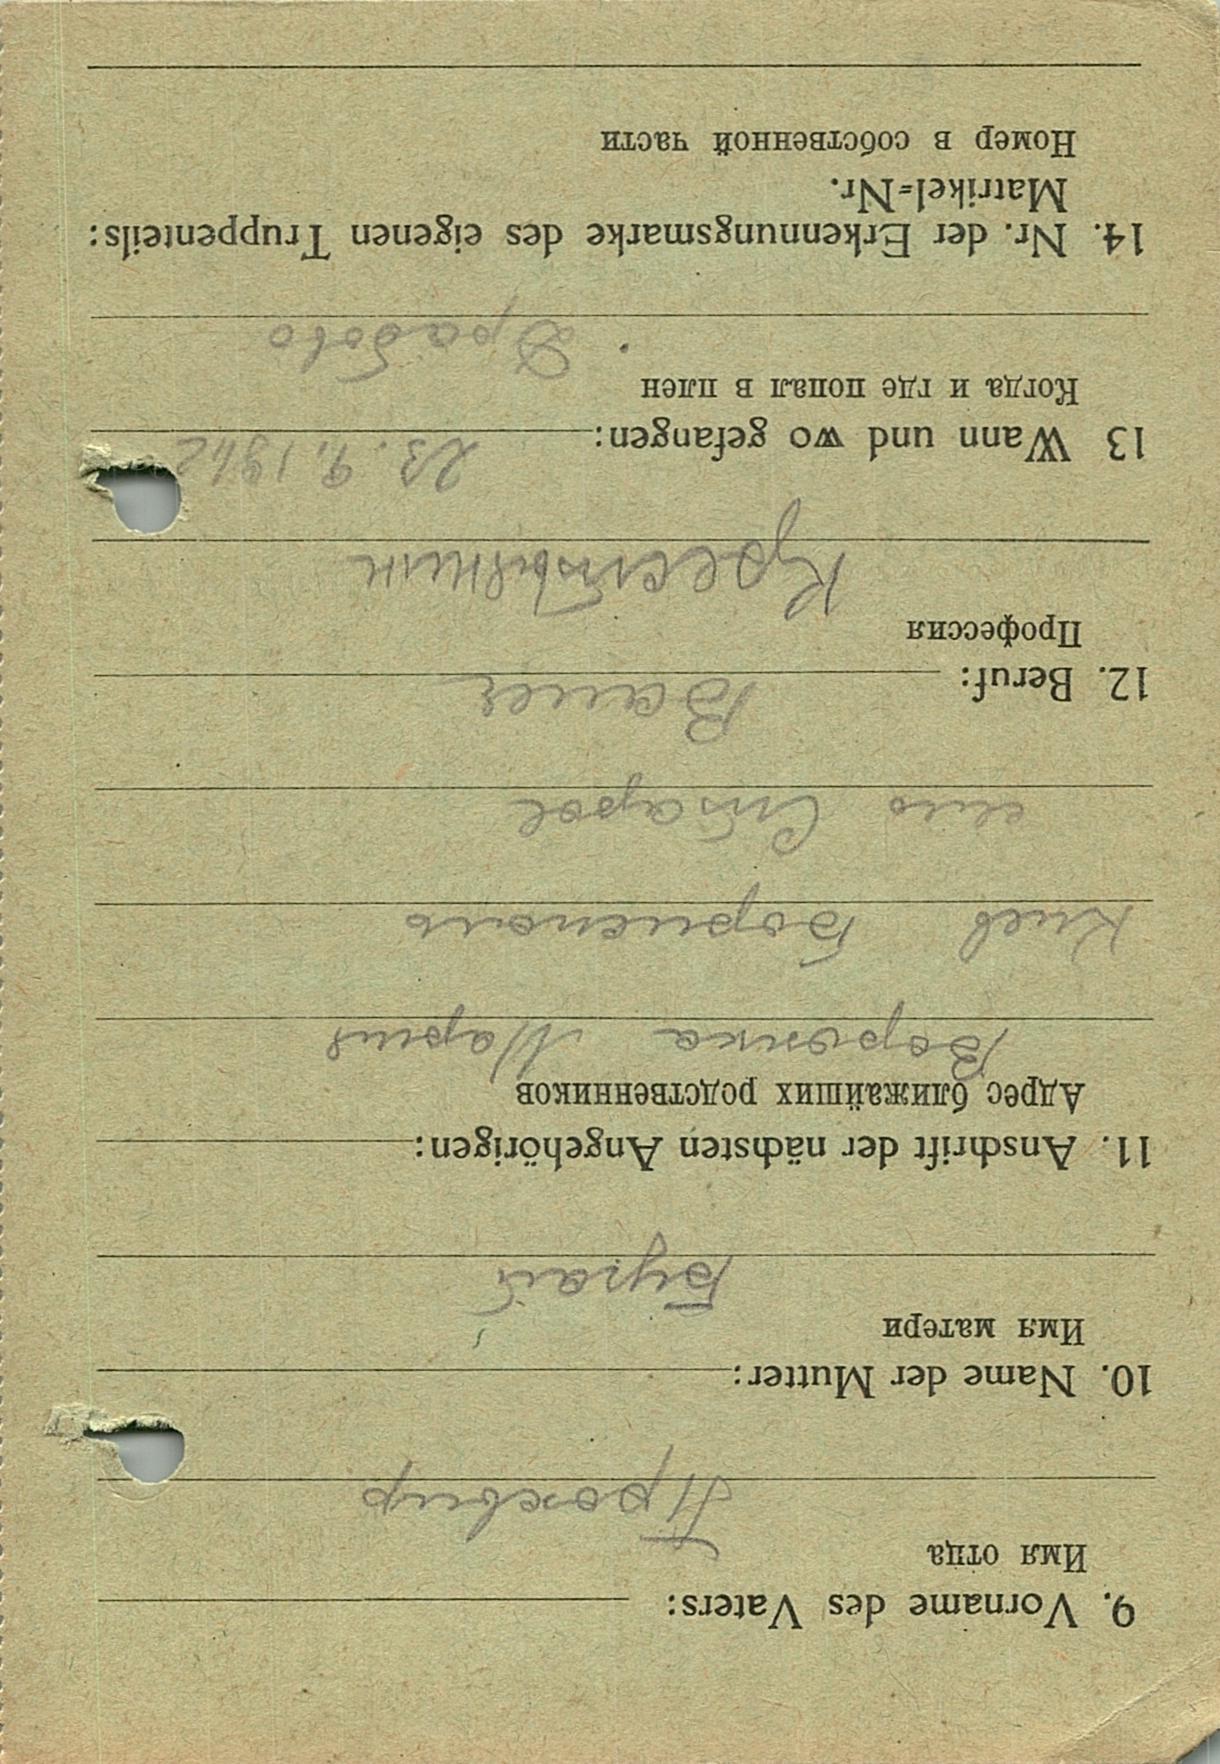 9. Vorname des Vaters:
Имя отца
10. Name der Mutter:
Имя матери
Бугай
11. Anschrift der nächsten Angehörigen:
Адрес ближайших родственников
Воронка Мария
Киев Борисполь
село Старое
12. Beruf: Bauer
Профессия
Крестьянин
13 Wann und wo gefangen: 23. 9. 1942
Когда и где попал в плен
Драбово
14. Nr. der Erkennungsmarke des eigenen Truppenteils:
Matrikel-Nr.
Номер в собственной части